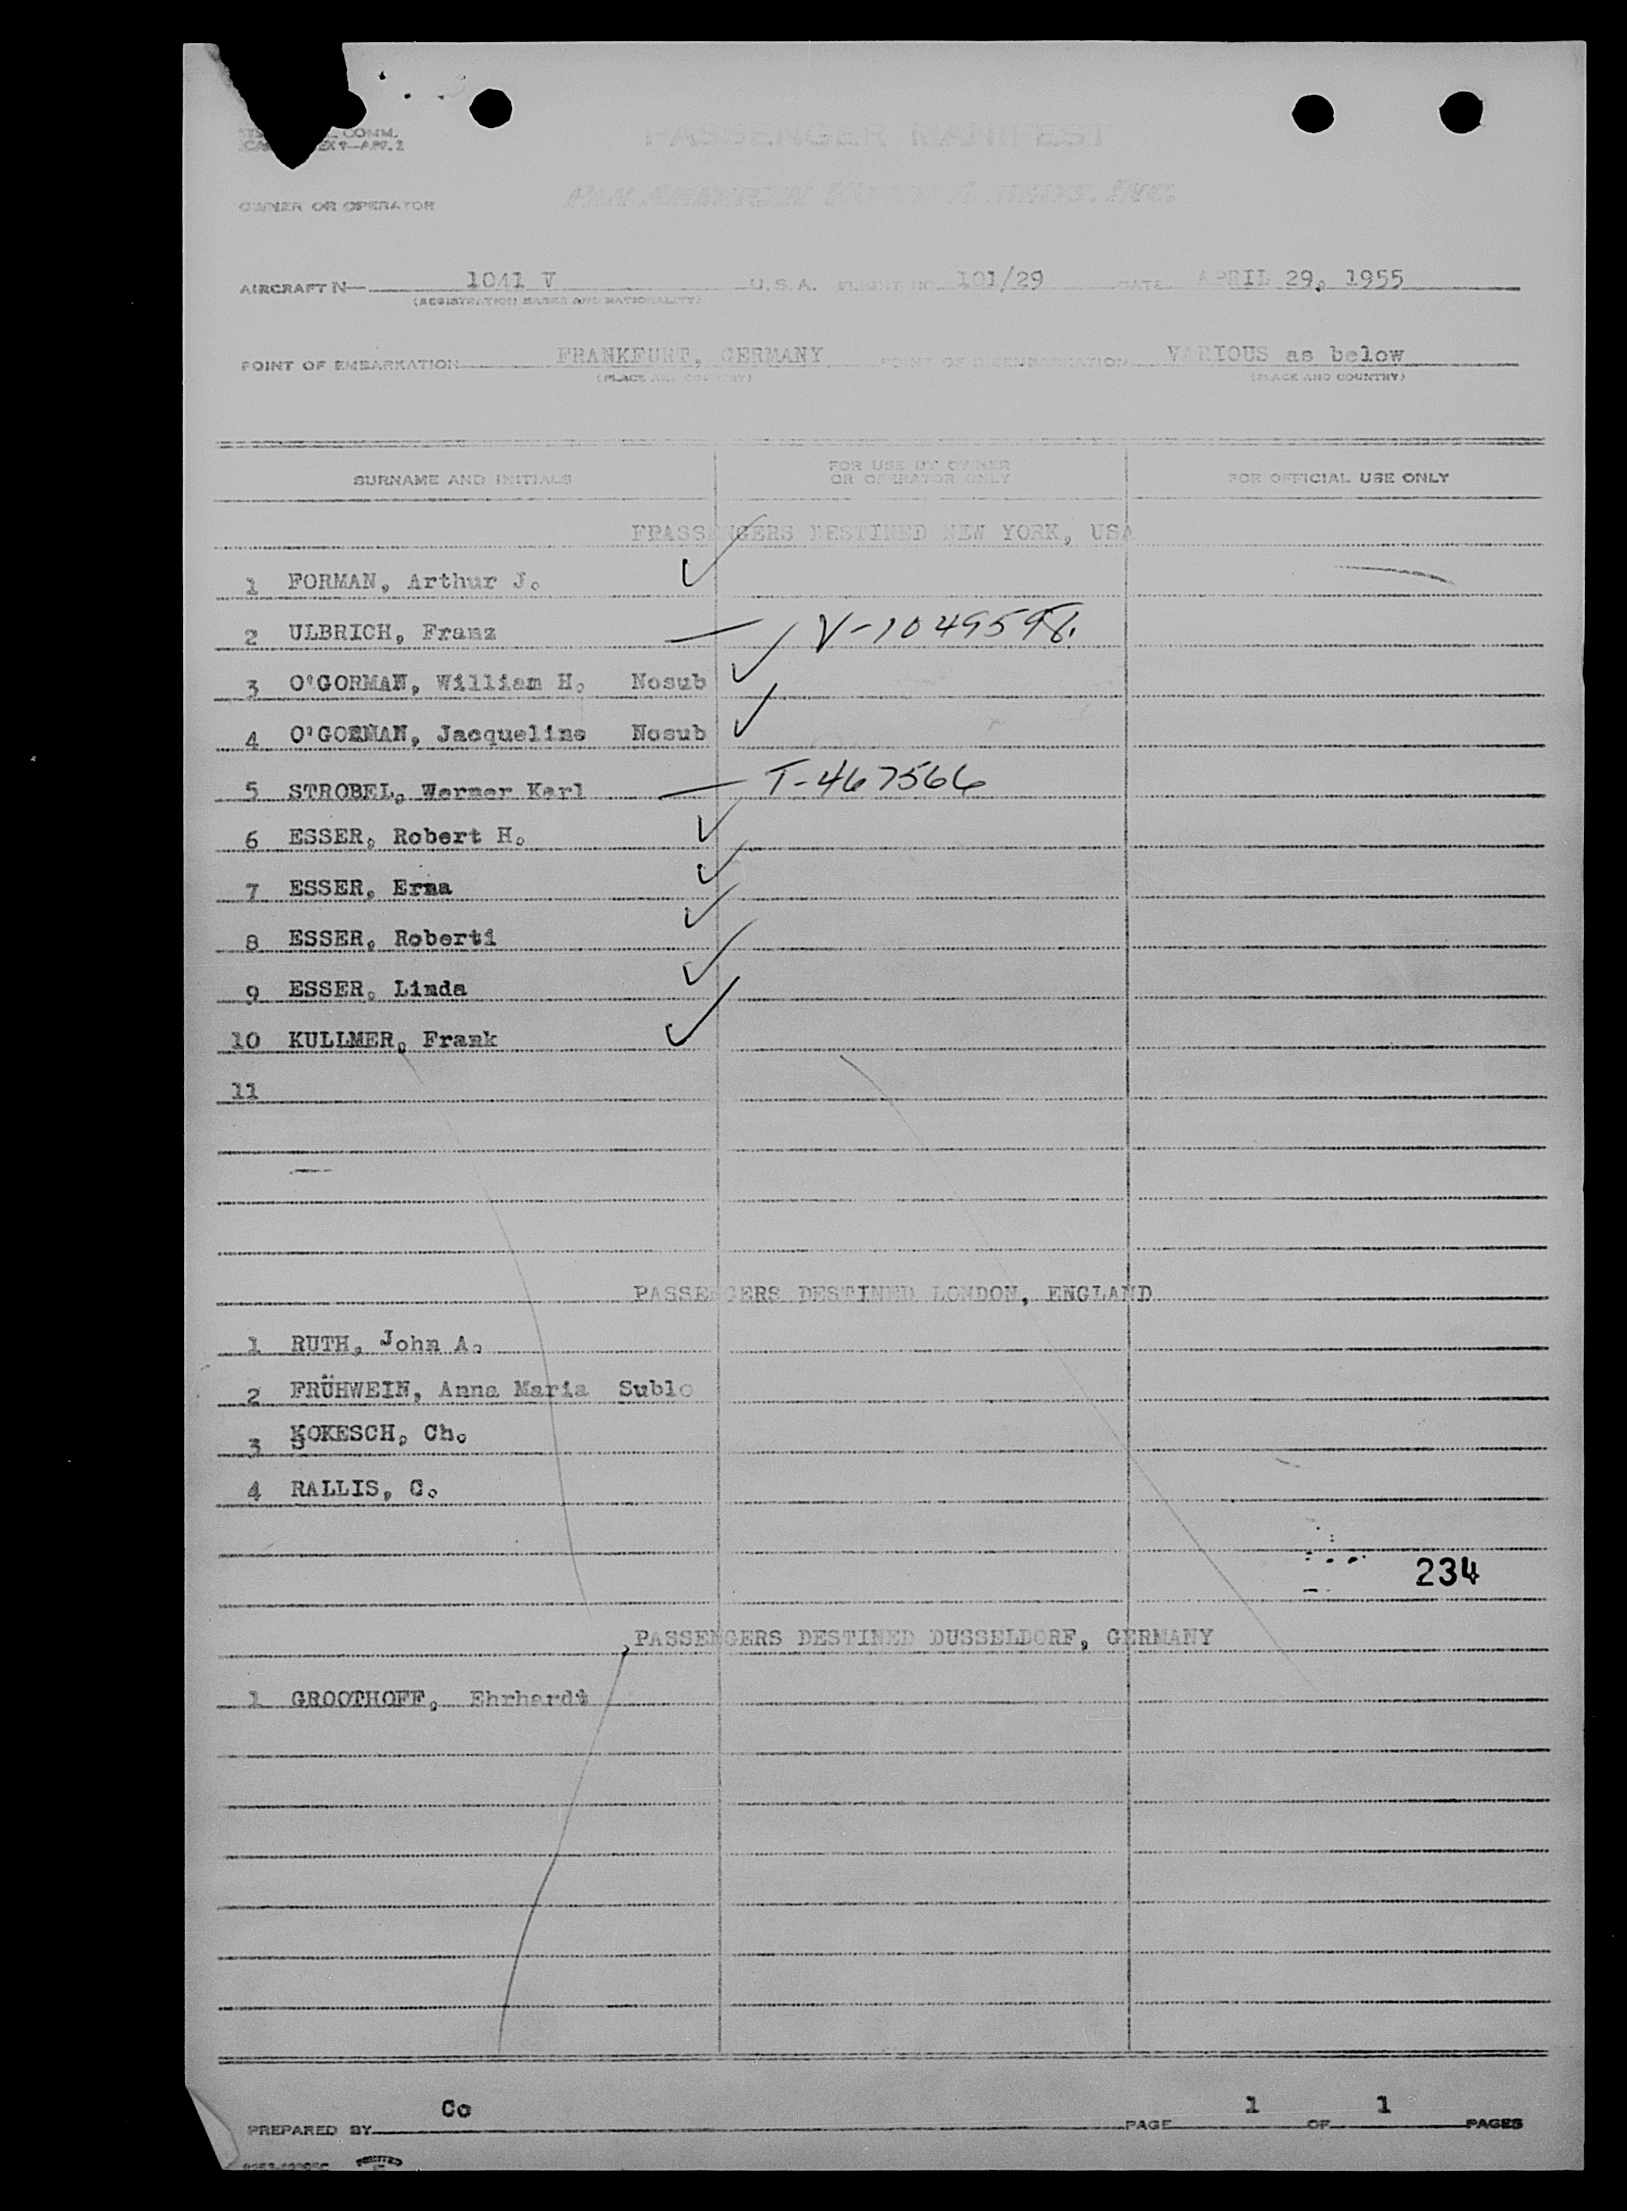 COMM.
OWNER OR OPERATOR
PAN AMERICAN WORLD AIRWAYS, INC.
AIRCRAFT N— 1041 V U.S.A. FLIGHT NO. 101/29 DATE APRIL 29, 1955
(REGISTRATION MARKS AND NATIONALITY)
POINT OF EMBARKATION FRANKFURT, GERMANY POINT OF DISEMBARKATION VARIOUS as below
(PLACE AND COUNTRY) (PLACE AND COUNTRY)
SURNAME AND INITIALS FOR USE BY OWNER OR OPERATOR ONLY FOR OFFICIAL USE ONLY
PRASSENGERS DESTINED NEW YORK, USA
1 FORMAN, Arthur J.
2 ULBRICH, Franz V-1049598.
3 O'GORMAN, William H. Nosub
4 O'GORMAN, Jacqueline Nosub
5 STROBEL, Werner Karl T-467566
6 ESSER, Robert H.
7 ESSER, Erna
8 ESSER, Roberti
9 ESSER, Linda
10 KULLMER, Frank
11
PASSENGERS DESTINED LONDON, ENGLAND
1 RUTH, John A.
2 FRÜHWEIN, Anna Maria Sublo
3 KOKESCH, Ch.
4 RALLIS, C.
234
PASSENGERS DESTINED DUSSELDORF, GERMANY
1 GROOTHOFF, Ehrhardt
PREPARED BY Co PAGE 1 OF 1 PAGES
PRINTED